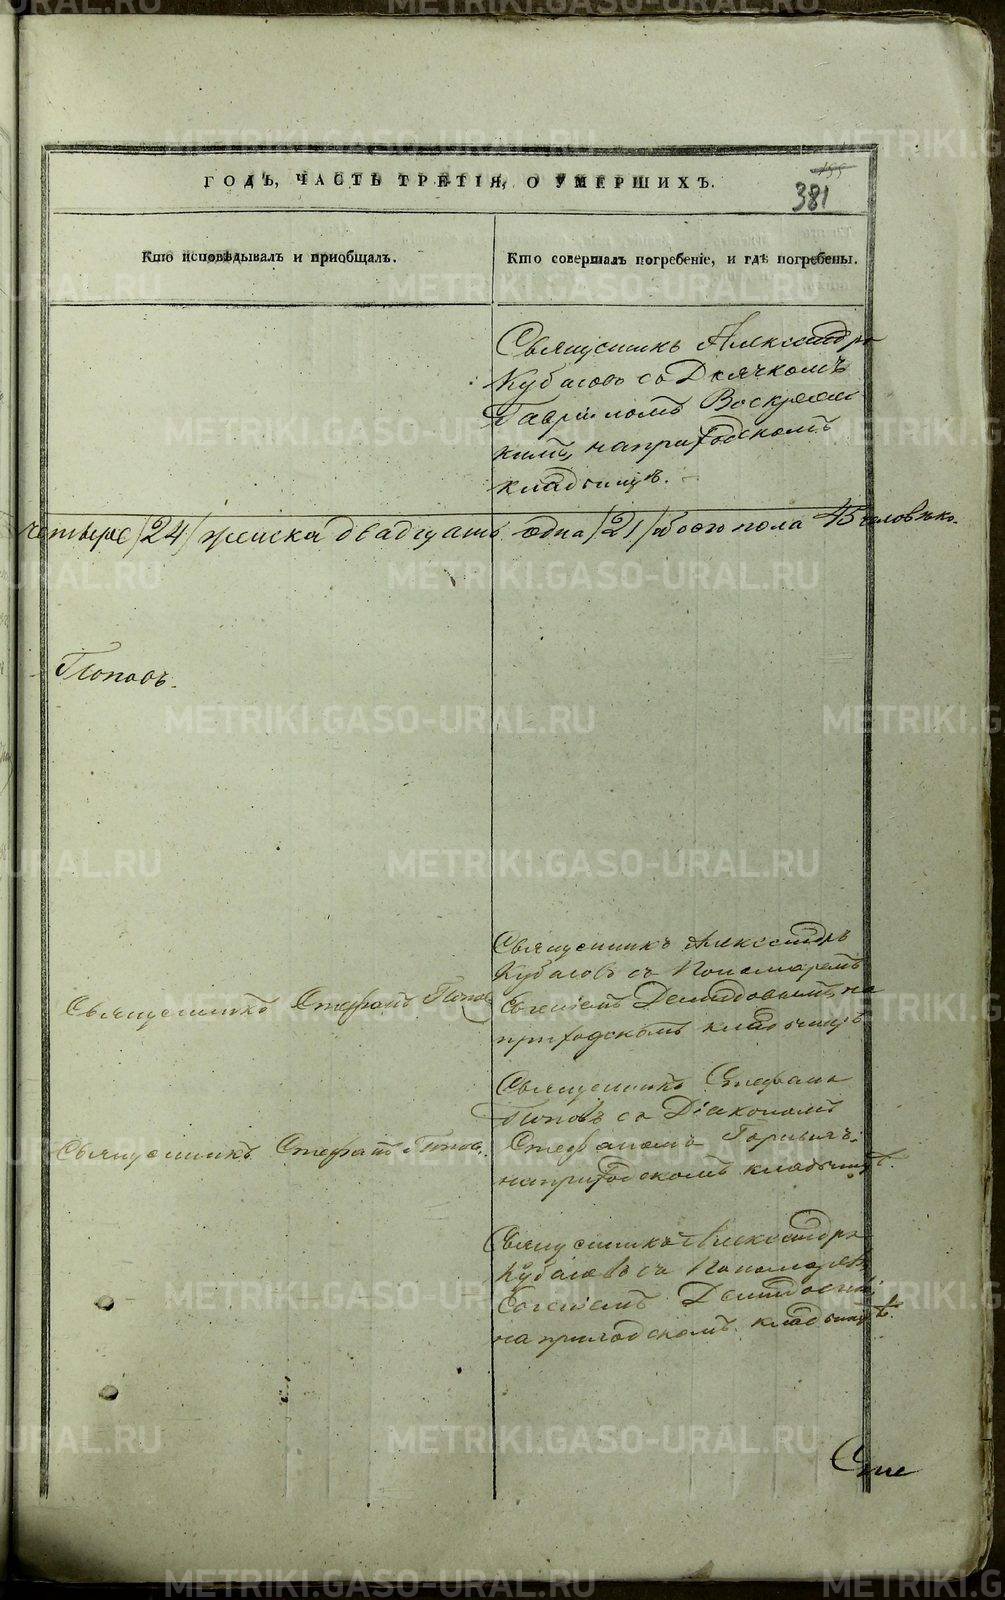 ГОДЪ, ЧАСТЬ ТРЕТІЯ, О УМЕРШИХЪ.
381
Кто исповѣдывалъ и пріобщалъ.
Кто совершалъ погребеніе, и гдѣ погребены.
Священникъ Александръ
Кубасовъ съ Дьячкомъ
Гавріиломъ Воскресен
кимъ, на приходскомъ
кладбищѣ.
четыре /24/ женска двадцать одна /21/ обоего пола 45 человѣкъ.
Поповъ.
Священникъ Стефанъ Попов
Священникъ Александръ
Кубасовъ съ Пономаремъ
Евгеніемъ Демидовымъ, на
приходскомъ кладбищѣ
Священникъ Стефанъ Попов.
Священникъ Стефанъ
Поповъ съ Діакономъ
Стефаномъ
на приходскомъ кладбищѣ.
Священникъ Александръ
Кубасовъ съ Пономаремъ
Евгеніемъ
на приходскомъ кладбищѣ.
METRIKI.GASO-URAL.RU